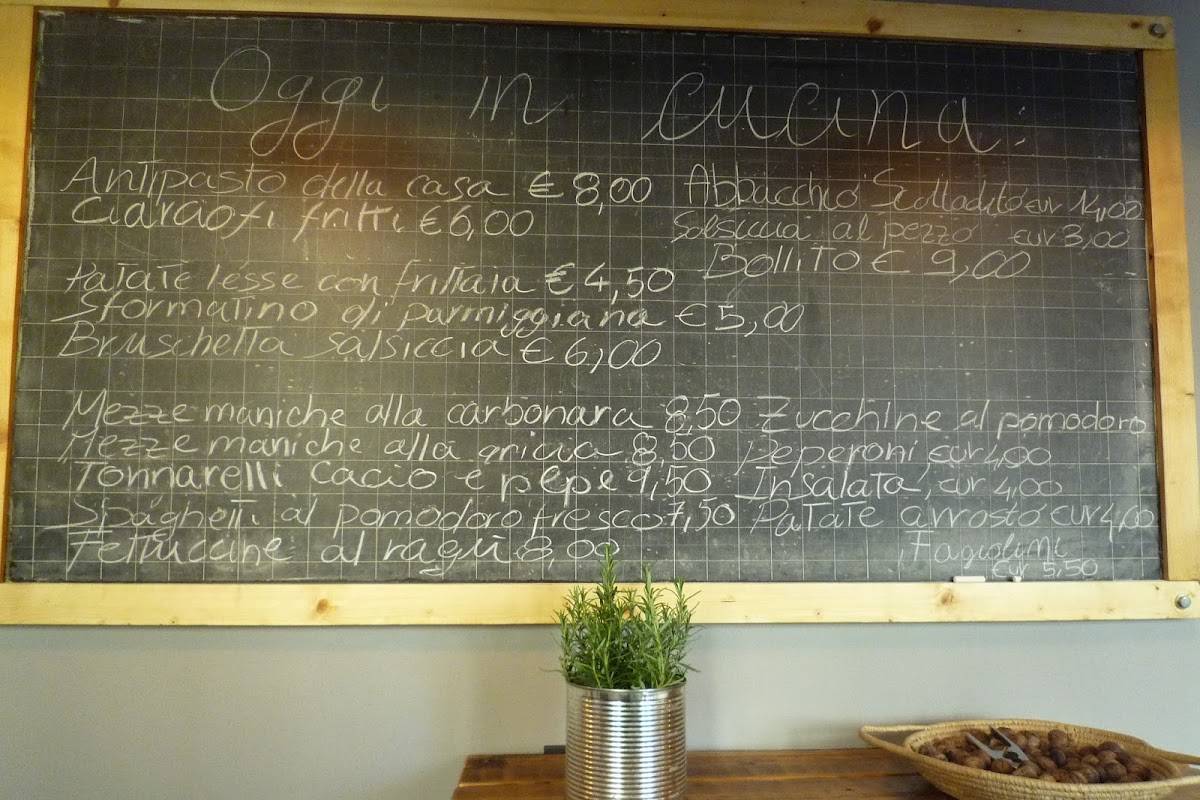 Oggi in cucina:
Antipasto della casa € 8,00
Ciarciofi fritti € 6,00
Patate lesse con frittaia € 4,50
Sformatino di parmiggiana € 5,00
Bruschetta salsiccia € 6,00
Mezze maniche alla carbonara 8,50
Mezze maniche alla gricia 8,50
Tonnarelli Cacio e pepe 9,50
Spaghetti al pomodoro fresco 7,50
Fettuccine al ragù 8,00
Abbacchio Scottadito eur 14,00
Salsiccia al pezzo eur 3,00
Bollito € 9,00
Zucchine al pomodoro
Peperoni eur 4,00
Insalata, eur 4,00
Patate arrosto eur 4,00
Fagiolini
eur 5,50